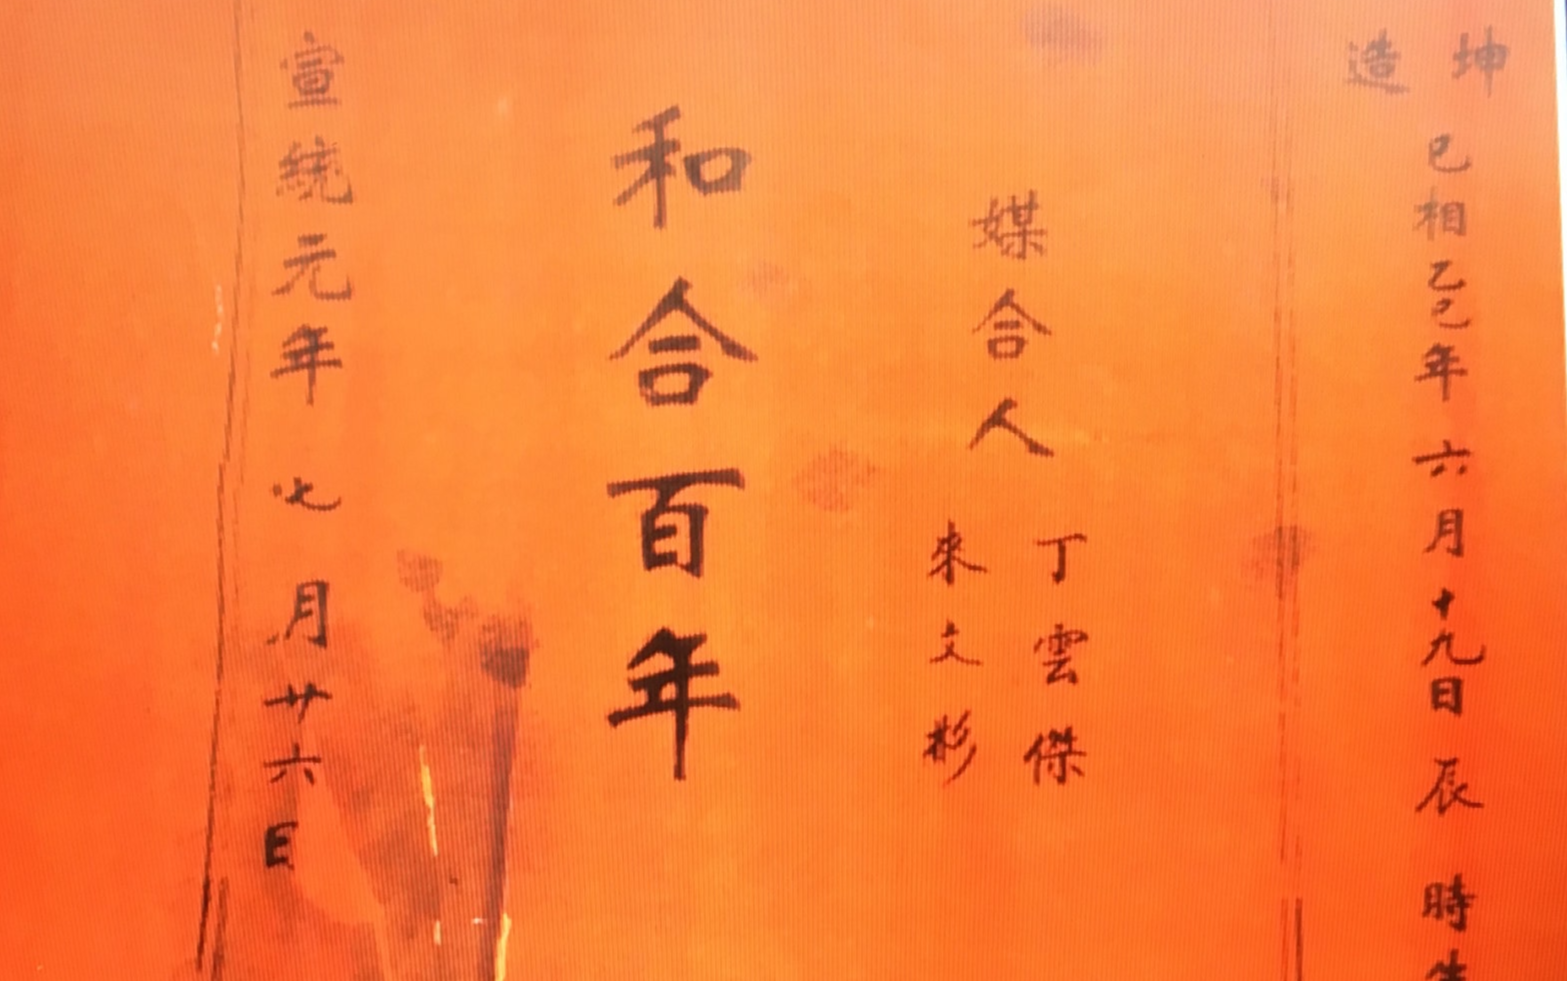 坤造 巳相乙巳年六月十九日辰時生
媒合人
丁雲傑
來文彬
和合百年
宣統元年七月廿六日